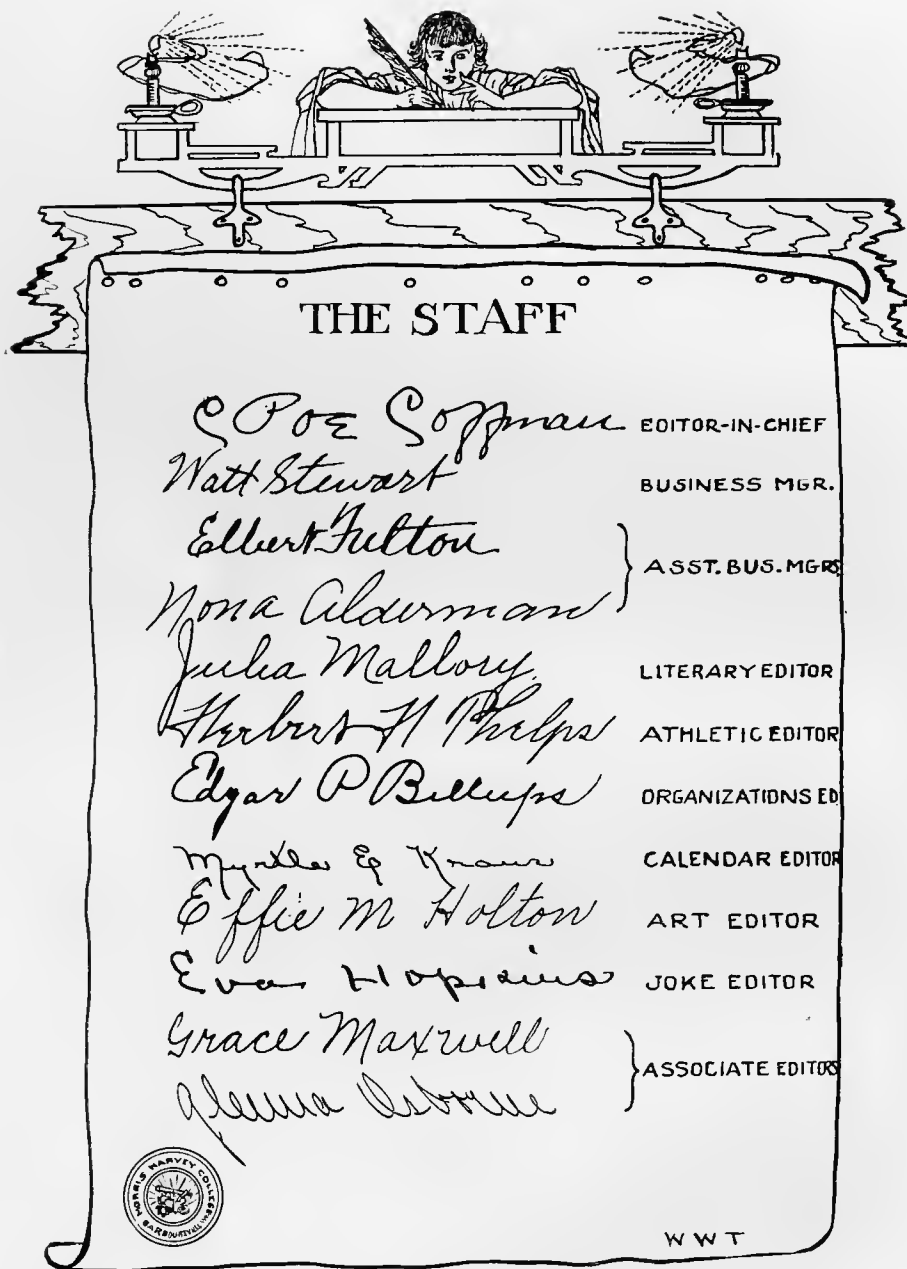 THE STAFF
C Poe Coffman EDITOR-IN-CHIEF
Watt Stewart BUSINESS MGR.
Elbert Fulton
ASST. BUS. MGRS
Nona Alderman
Julia Mallory LITERARY EDITOR
Herbert H Phelps ATHLETIC EDITOR
Edgar P Billups ORGANIZATIONS ED
Myrtle E CALENDAR EDITOR
Effie M Holton ART EDITOR
Eva Hopkins JOKE EDITOR
Grace Maxwell
ASSOCIATE EDITORS
Glenna Osborne
MORRIS HARVEY COLLEGE
BARBOURSVILLE
WWT